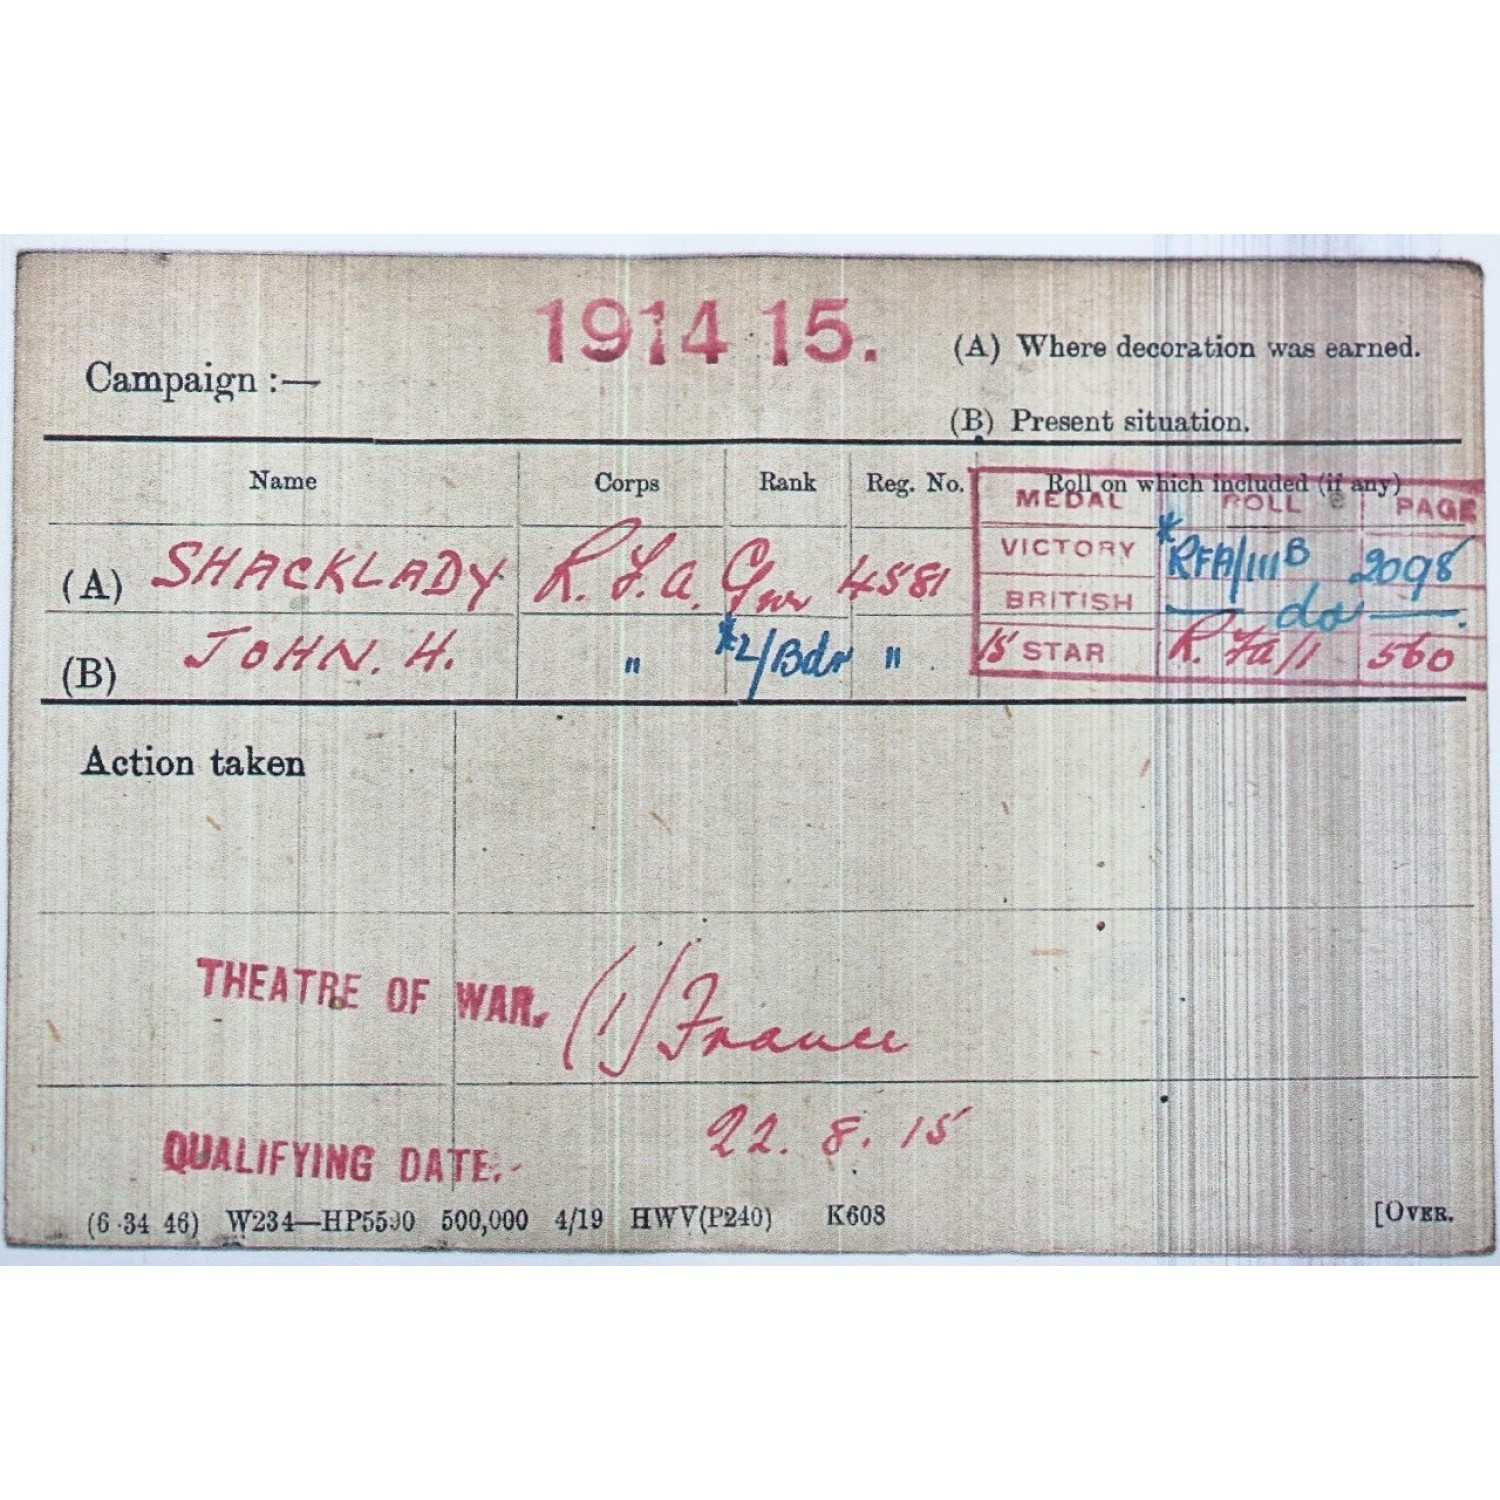 1914 15.
Campaign :—
(A) Where decoration was earned.
(B) Present situation.
Name Corps Rank Reg. No. Roll on which included (if any)
MEDAL ROLL PAGE
(A) SHACKLADY R.F.A. Gnr 4581 VICTORY *RFA/111B 2098
BRITISH — do — .
(B) JOHN. H. " *L/Bdr " 15 STAR R.Fa/1 560
Action taken
THEATRE OF WAR. (1) France
QUALIFYING DATE. 22. 8. 15
(6 34 46) W234—HP5590 500,000 4/19 HWV(P240) K608 [OVER.